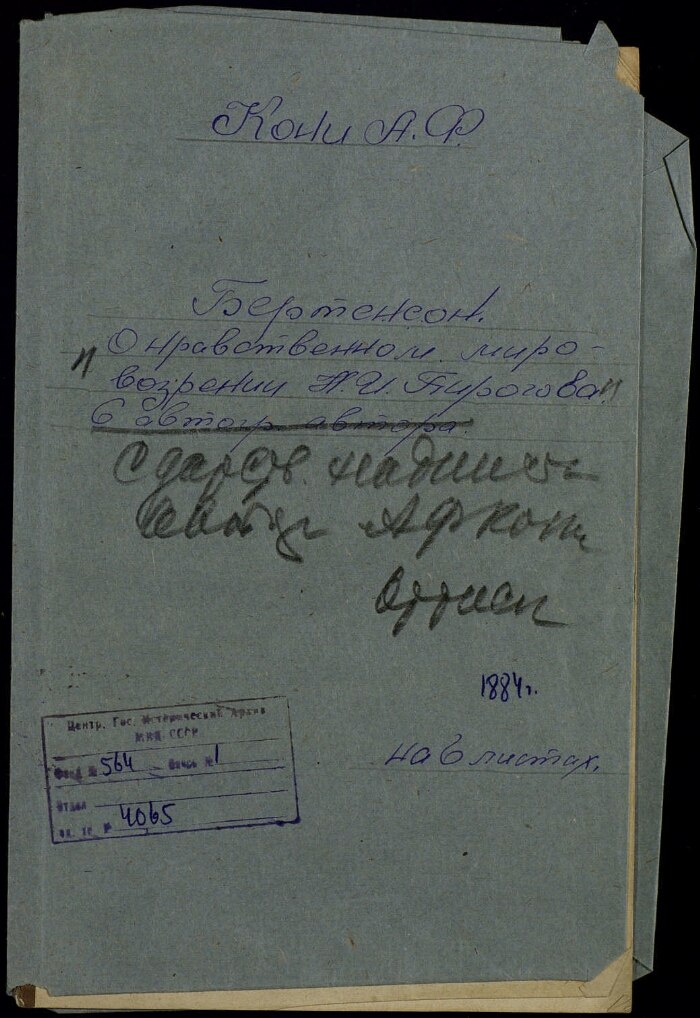 Кони А.Ф.
Бертенсон.
"О нравственном миро-
возрении Н.И. Пирогова"
С автогр автора.
С дарств. надписью
А Ф Кони
Оттиск
1884г.
на 6 листах.
Центр. Гос. Исторический Архив
МВД СССР
Фонд № 564 Опись № 1
Отдел
ед. хр. № 4065